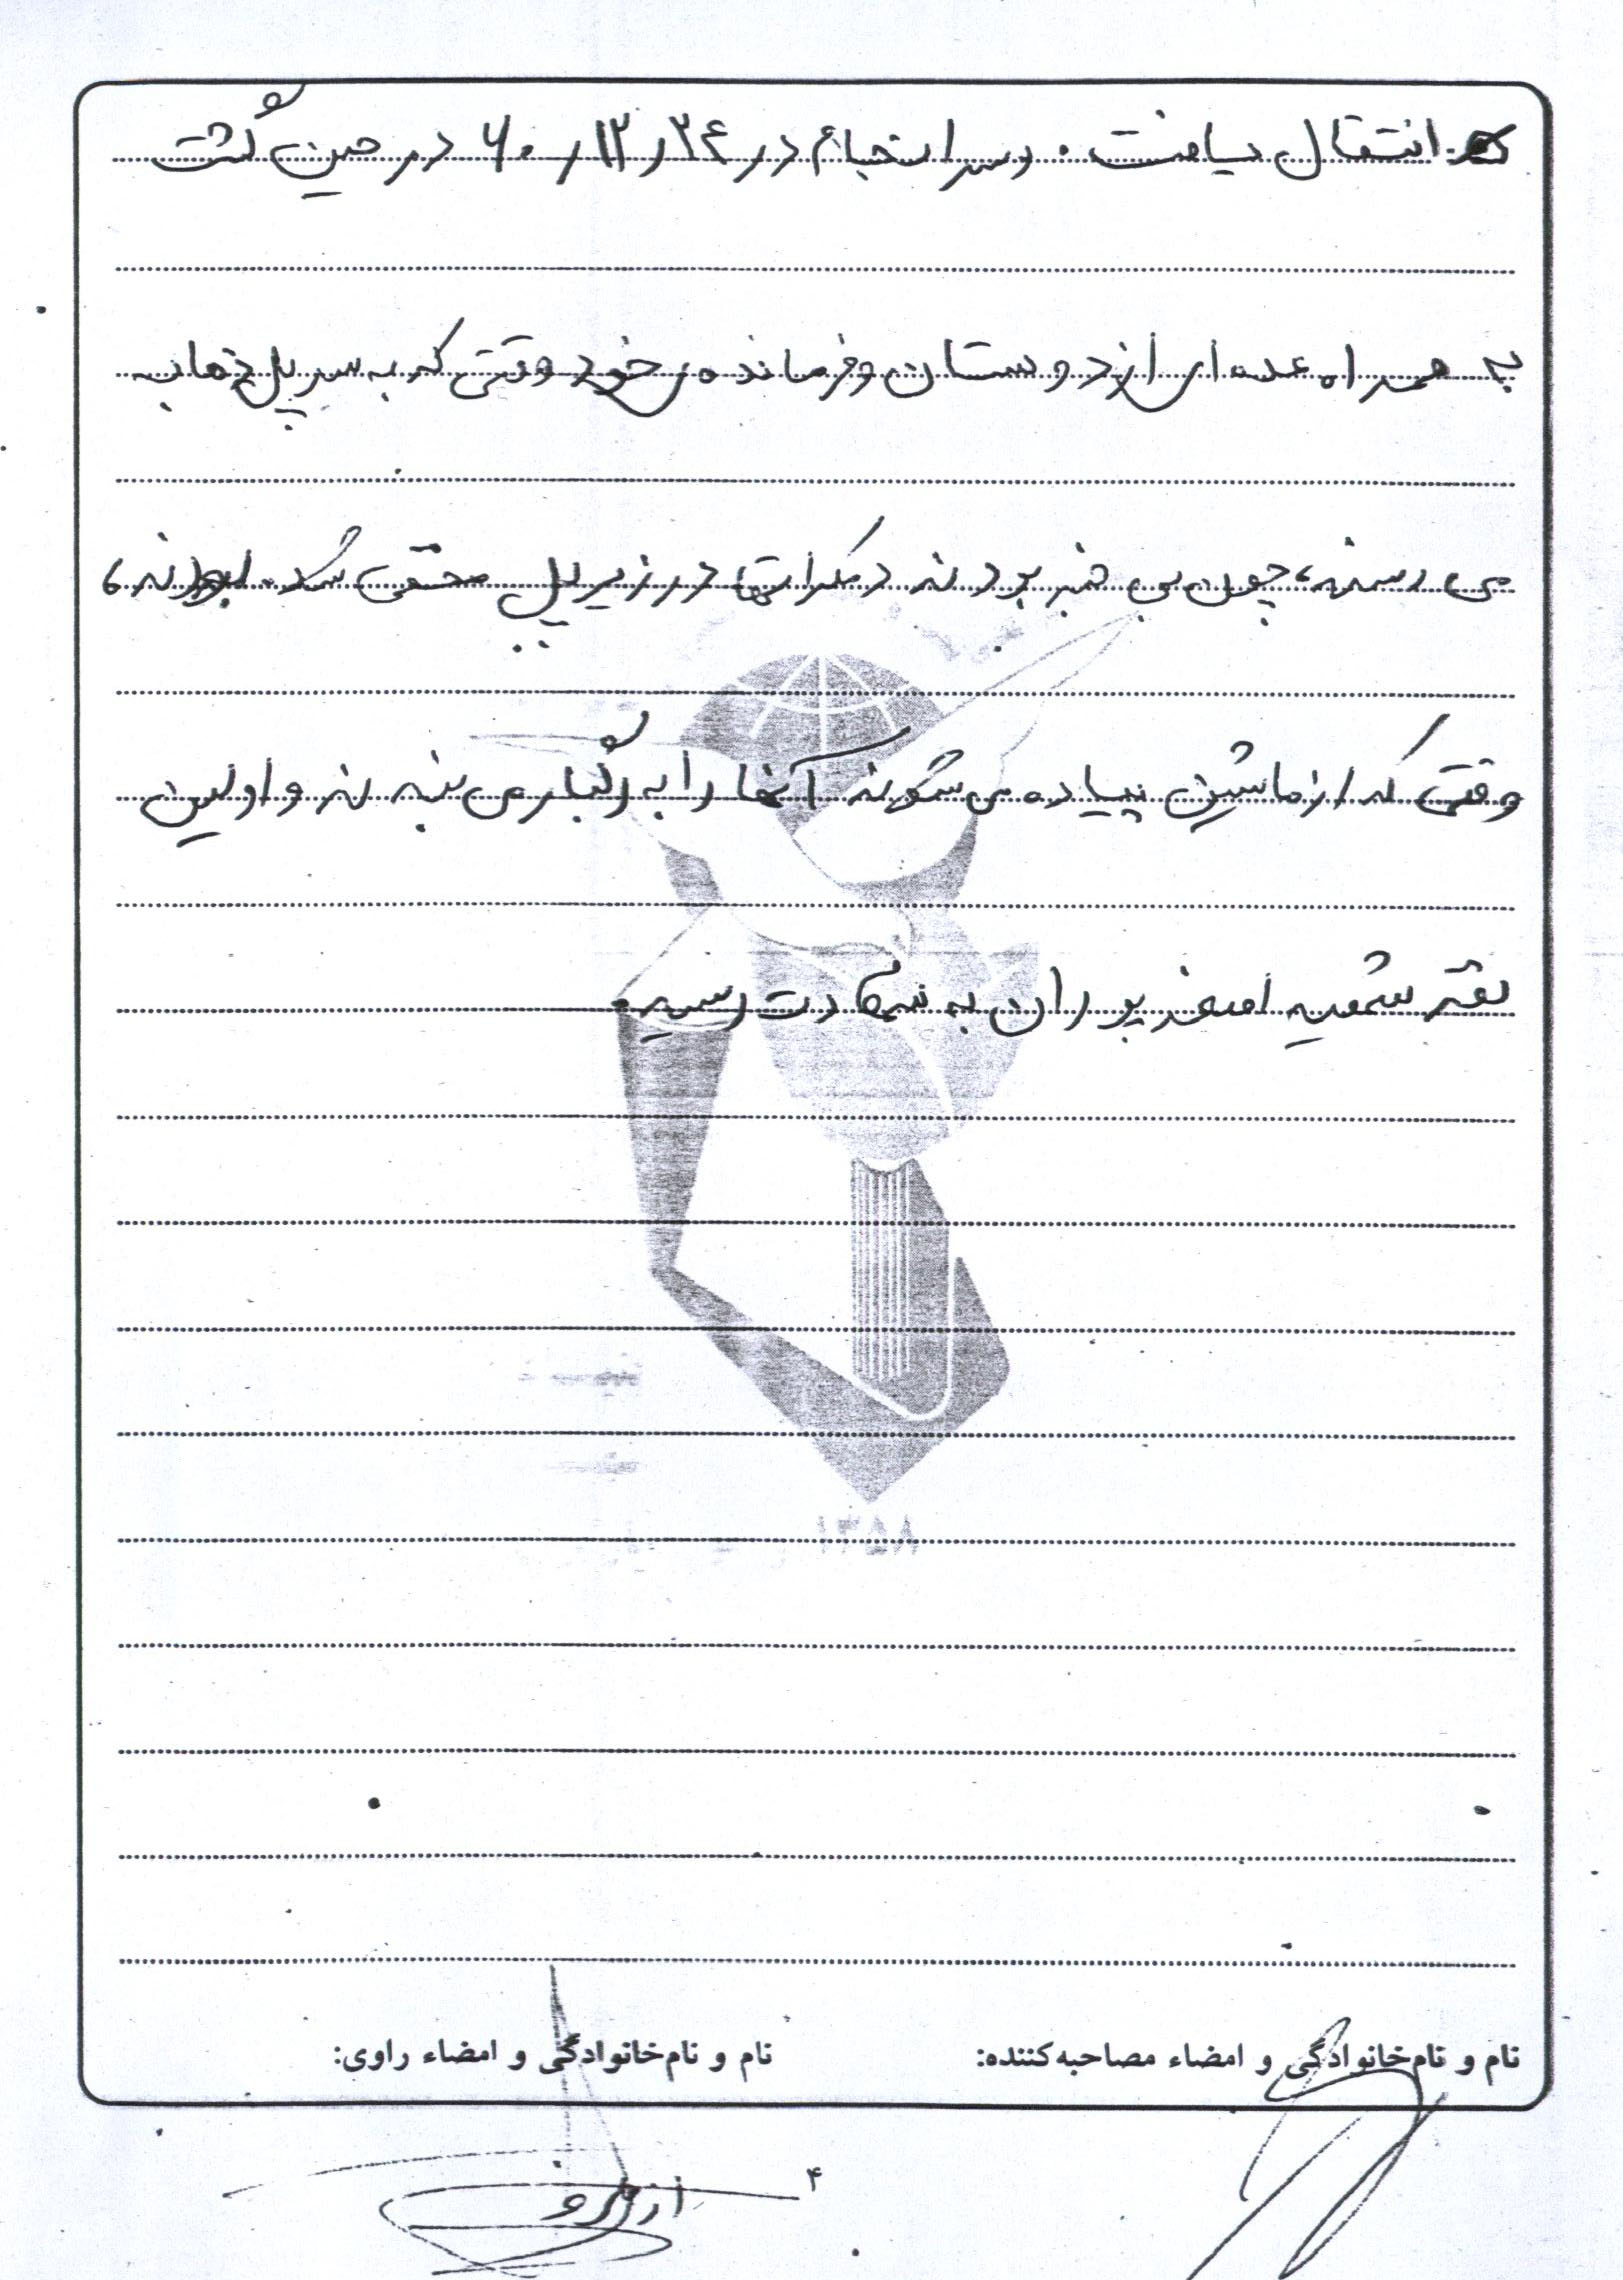 انتقال یافت. و سرانجام در ۲۴ر۱۲ر۶۰ در حین گشت
به همراه عده ای از دوستان و فرمانده ی خود وقتی که به سرپل ذهاب
می رسند، چون بی خبر بودند دمکراتها در زیر پل مخفی شده بودند،
وقتی که از ماشین پیاده می شوند آنها را به رگبار می بندند و اولین
نفر شهید اصغر پوران به شهادت رسید.
۱۳۵۸
نام و نام‌خانوادگی و امضاء مصاحبه‌کننده:
نام و نام‌خانوادگی و امضاء راوی:
۴